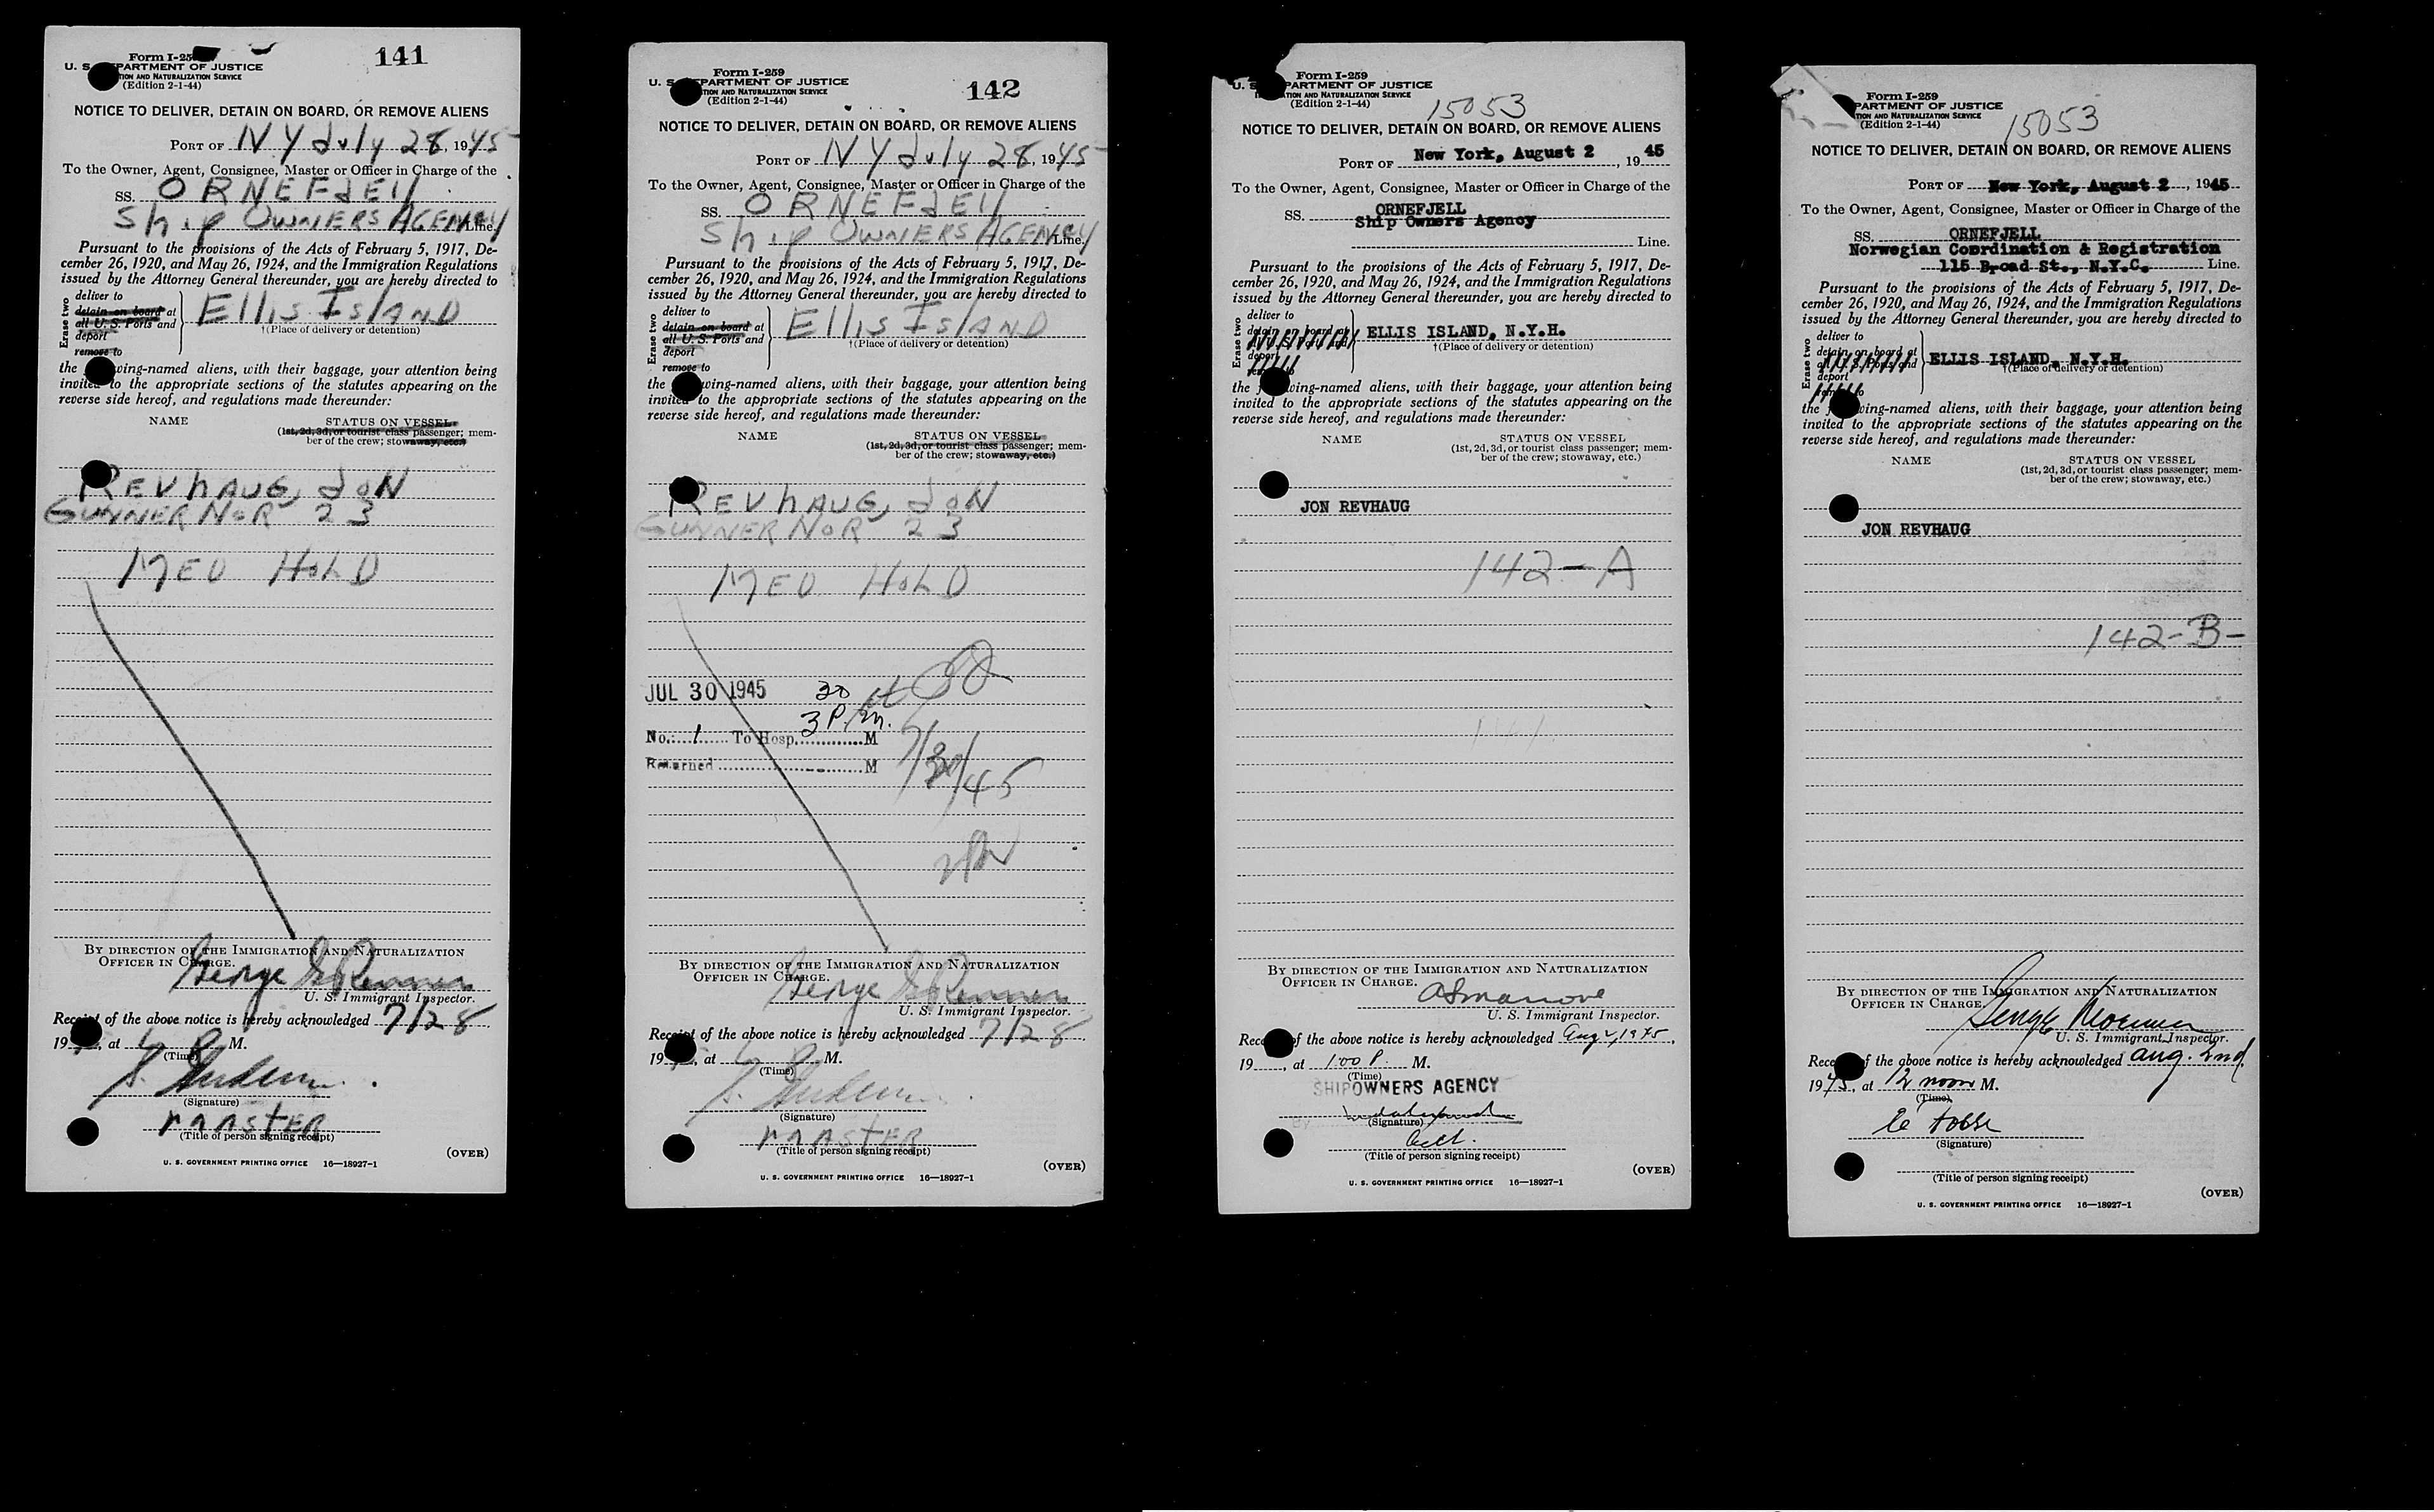 141
Form I-25
U. S. PARTMENT OF JUSTICE
TION AND NATURALIZATION SERVICE
(Edition 2-1-44)
NOTICE TO DELIVER, DETAIN ON BOARD, OR REMOVE ALIENS
PORT OF N Y July 28, 1945
To the Owner, Agent, Consignee, Master or Officer in Charge of the
SS. ORNEFJEll
Ship OWNERS AGENcy Line.
Pursuant to the provisions of the Acts of February 5, 1917, De-
cember 26, 1920, and May 26, 1924, and the Immigration Regulations
issued by the Attorney General thereunder, you are hereby directed to
Erase two
deliver to
detain on board at
all U. S. Ports and
deport
remove to
Ellis IslAND
†(Place of delivery or detention)
the wing-named aliens, with their baggage, your attention being
invited to the appropriate sections of the statutes appearing on the
reverse side hereof, and regulations made thereunder:
NAME STATUS ON VESSEL
(1st, 2d, 3d, or tourist class passenger; mem-
ber of the crew; stowaway, etc.)
REVHAUG, JoN
GUNNER NoR 23
MED HoLD
BY DIRECTION OF THE IMMIGRATION AND NATURALIZATION
OFFICER IN CHARGE.
George
U. S. Immigrant Inspector.
Receipt of the above notice is hereby acknowledged 7/28
19 , at 6 P M.
(Time)
(Signature)
MASTER
(Title of person signing receipt)
(OVER)
U. S. GOVERNMENT PRINTING OFFICE 16—18927-1
142
Form I-259
U. S. PARTMENT OF JUSTICE
TION AND NATURALIZATION SERVICE
(Edition 2-1-44)
NOTICE TO DELIVER, DETAIN ON BOARD, OR REMOVE ALIENS
PORT OF N Y July 28, 1945
To the Owner, Agent, Consignee, Master or Officer in Charge of the
SS. ORNEFJEll
Ship OWNERS AGENcy Line.
Pursuant to the provisions of the Acts of February 5, 1917, De-
cember 26, 1920, and May 26, 1924, and the Immigration Regulations
issued by the Attorney General thereunder, you are hereby directed to
Erase two
deliver to
detain on board at
all U. S. Ports and
deport
remove to
Ellis IslAND
†(Place of delivery or detention)
the wing-named aliens, with their baggage, your attention being
invited to the appropriate sections of the statutes appearing on the
reverse side hereof, and regulations made thereunder:
NAME STATUS ON VESSEL
(1st, 2d, 3d, or tourist class passenger; mem-
ber of the crew; stowaway, etc.)
REVHAUG, JoN
GUNNER NoR 23
MED HoLD
JUL 30 1945
3 P. m.
No. 1 To Hosp. M
7/30/45
Returned M
BY DIRECTION OF THE IMMIGRATION AND NATURALIZATION
OFFICER IN CHARGE.
George
U. S. Immigrant Inspector.
Receipt of the above notice is hereby acknowledged 7/28
19 , at 6 P M.
(Time)
(Signature)
MASTER
(Title of person signing receipt)
(OVER)
U. S. GOVERNMENT PRINTING OFFICE 16—18927-1
Form I-259
U. S. PARTMENT OF JUSTICE
TION AND NATURALIZATION SERVICE
(Edition 2-1-44)
15053
NOTICE TO DELIVER, DETAIN ON BOARD, OR REMOVE ALIENS
PORT OF New York, August 2, 1945
To the Owner, Agent, Consignee, Master or Officer in Charge of the
SS. ORNEFJELL
Ship Owners Agency
Line.
Pursuant to the provisions of the Acts of February 5, 1917, De-
cember 26, 1920, and May 26, 1924, and the Immigration Regulations
issued by the Attorney General thereunder, you are hereby directed to
Erase two
deliver to
detain on board at
all U. S. Ports and
deport
remove to
ELLIS ISLAND, N.Y.H.
†(Place of delivery or detention)
the f wing-named aliens, with their baggage, your attention being
invited to the appropriate sections of the statutes appearing on the
reverse side hereof, and regulations made thereunder:
NAME STATUS ON VESSEL
(1st, 2d, 3d, or tourist class passenger; mem-
ber of the crew; stowaway, etc.)
JON REVHAUG
142-A
BY DIRECTION OF THE IMMIGRATION AND NATURALIZATION
OFFICER IN CHARGE.
U. S. Immigrant Inspector.
Rece of the above notice is hereby acknowledged Aug 2, 1945,
19 , at 1:00 P. M.
(Time)
SHIPOWNERS AGENCY
By
(Signature)
(Title of person signing receipt)
(OVER)
U. S. GOVERNMENT PRINTING OFFICE 16—18927-1
Form I-259
PARTMENT OF JUSTICE
TION AND NATURALIZATION SERVICE
(Edition 2-1-44)
15053
NOTICE TO DELIVER, DETAIN ON BOARD, OR REMOVE ALIENS
PORT OF New York, August 2, 1945
To the Owner, Agent, Consignee, Master or Officer in Charge of the
SS. ORNEFJELL
Norwegian Coordination & Registration
115 Broad St., N.Y.C. Line.
Pursuant to the provisions of the Acts of February 5, 1917, De-
cember 26, 1920, and May 26, 1924, and the Immigration Regulations
issued by the Attorney General thereunder, you are hereby directed to
Erase two
deliver to
detain on board at
all U. S. Ports and
deport
remove to
ELLIS ISLAND, N.Y.H.
†(Place of delivery or detention)
the f wing-named aliens, with their baggage, your attention being
invited to the appropriate sections of the statutes appearing on the
reverse side hereof, and regulations made thereunder:
NAME STATUS ON VESSEL
(1st, 2d, 3d, or tourist class passenger; mem-
ber of the crew; stowaway, etc.)
JON REVHAUG
142-B-
BY DIRECTION OF THE IMMIGRATION AND NATURALIZATION
OFFICER IN CHARGE.
U. S. Immigrant Inspector.
Rece of the above notice is hereby acknowledged Aug. 2nd,
1945, at 12 noon M.
(Time)
(Signature)
(Title of person signing receipt)
(OVER)
U. S. GOVERNMENT PRINTING OFFICE 16—18927-1